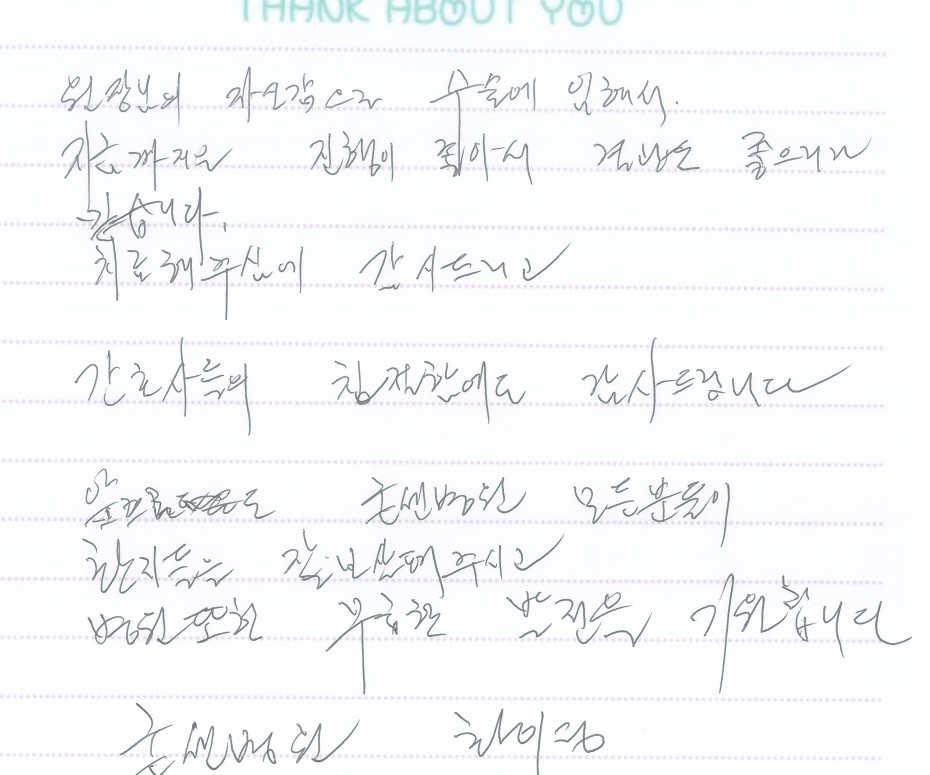 THANK ABOUT YOU
원장님의 자모감으로 수술에 임해서.
지금까지는 진행이 되어서 결과는 좋으리라
같습니다.
치료해주심에 감사드리고
간호사들의 친절함에도 감사드립니다
앞으로도 굿센병원 모든분들이
환자들을 잘 보살펴주시고
병원또한 무궁한 발전을 기원합니다
굿센병원 화이팅